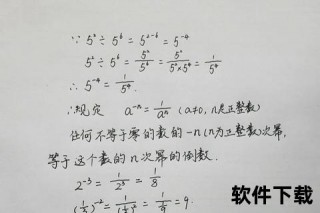 ∵ 5² ÷ 5⁶ = 5²⁻⁶ = 5⁻⁴
5² ÷ 5⁶ = 5²/5⁶ = 5²/(5²×5⁴) = 1/5⁴
∴ 5⁻⁴ = 1/5⁴.
∴规定 a⁻ⁿ = 1/aⁿ (a≠0, n是正整数)
任何不等于零的数的-n(n为正整数)次幂,
等于这个数的n次幂的倒数.
2⁻³ = 1/2³ = 1/8
(1/3)⁻² = 1/(1/3)² = 1/(1/9) = 9.
软件下载